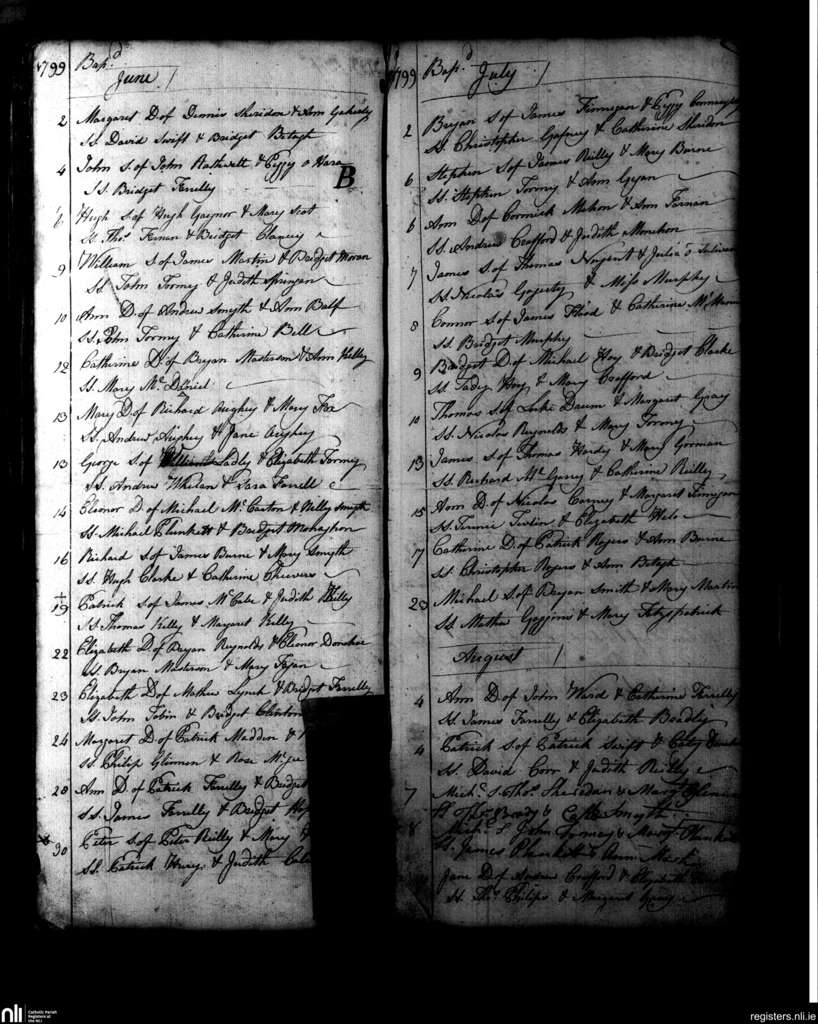 1799 Bapd
June
2 Margaret D of Dennis Sheridon & Ann
SS. David Swift & Bridget Betagh
4 John S. of John Rathwell & Peggy o Hara
SS. Bridget Ferelly
B
6 Hugh S of Hugh Gaynor & Mary Scot
SS. Thos. Fernon & Bridget Clancey
9 William S of James Martin & Bridget Moran
SS John Tormey & Judith
10 Ann D. of Andrew Smyth & Ann Balf
SS. John Tormey & Catherine Bell
12 Catherine D. of Bryan Masterson & Ann Kelly
SS. Mary Mc Daniel
13 Mary D. of Richard Aughey & Mary Fox
SS. Andrew Aughey & Jane Aughey
13 George S of Ladly & Elizabeth Tormey
SS. Andrew Whelan & Sara Farrell
14 Eleonor D of Michael Mc Carton & Nelly Smyth
SS. Michael Plunkett & Bridget Monaghon
16 Richard S of James Burne & Mary Smyth
SS. Hugh Clarke & Catherine Cheevers
19 Patrick S of James Mc Cabe & Judith Reilly
SS Thomas Kelly & Margaret Kelly
22 Elizabeth D of Bryan Reynolds & Eleonor Donohoe
SS. Bryan Masterson & Mary Fagan
23 Elizabeth D of Mathew Lynch & Bridget Farrelly
SS. John Tobin & Bridget Clinton
24 Margaret D of Patrick Madden &
SS. Philip Glennon & Rose Mc
28 Ann D of Patrick Ferelly & Bridget
SS. James Ferelly & Bridget
30 Peter S of Peter Reilly & Mary
SS. Patrick Henry & Judith
1799 Bapd July
2 Bryan S of James Finnegan & Peggy
SS. Christopher Gafney & Catherine Sheridon
6 Stephen S of James Reilly & Mary Burne
SS. Stephen Tormey & Ann
6 Ann D of Cormick Mahon & Ann Fernon
SS. Andrew Crafford & Judith Monahon
7 James S. of Thomas Nugent & Julia o Sulivan
SS. Nicolas & Miss Murphy
8 Connor S of James Flood & Catherine Mc
SS. Bridget Murphy
9 Bridget D of Michael Hoy & Bridget Clarke
SS. Lady Hoy & Mary Crafford
10 Thomas S of Luke Daum & Margaret Gray
SS. Nicolas Reynolds & Mary Tormey
13 James S of Thomas Hardy & Mary Gorman
SS Richard Mc Garry & Catherine Reilly
15 Ann D of Nicolas Carney & Margaret Finnegan
SS. & Elizabeth Hale
17 Catherine D. of Patrick Rogers & Ann Burne
SS. Christopher Rogers & Ann Betagh
20 Michael S. of Bryan Smith & Mary Martin
SS Mathew Goggins & Mary Fitzpatrick
August
4 Ann D. of John Ward & Catherine Ferrelly
SS James Ferrelly & Elizabeth Boadly
4 Patrick S of Patrick Swift & Catty
SS. David Corr & Judith Reilly
7 Mich. S. Thos. Sheridan & Mary
& Smyth
8 Mich. S John Tormey & Mary Plunket
SS. James Plunkett & Ann
Jane D. of Andrew Crafford & Elizabeth
SS. Thos. Philips & Margaret Gray
nli
Catholic Parish Registers at the NLI
registers.nli.ie